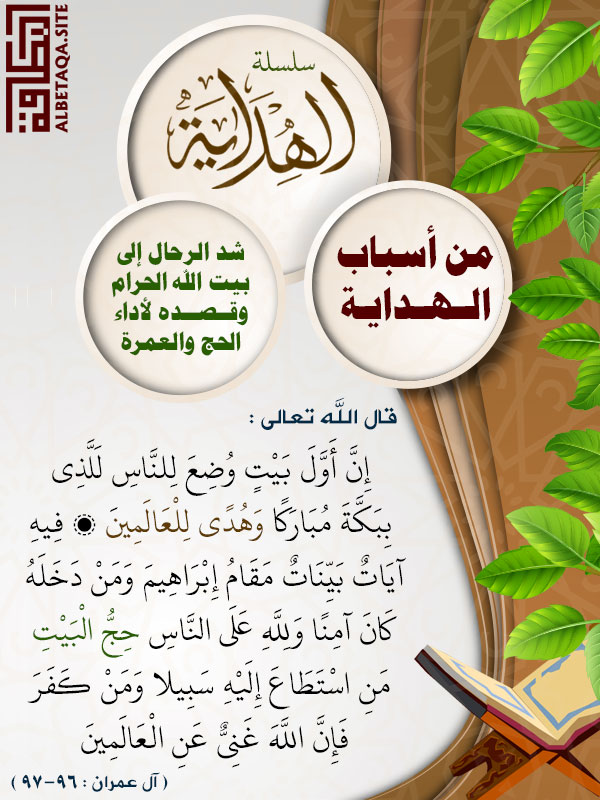 البطاقة
ALBETAQA.SITE
سلسلة
الهداية
من أسباب
الـهـدايـة
شد الرحال إلى
بيت الله الحرام
وقـصـده لأداء
الحج والعمرة
قال الله تعالى :
إِنَّ أَوَّلَ بَيْتٍ وُضِعَ لِلنَّاسِ لَلَّذِى
بِبَكَّةَ مُبَارَكًا وَهُدًى لِلْعَالَمِينَ ۞ فِيهِ
آيَاتٌ بَيِّنَاتٌ مَقَامُ إِبْرَاهِيمَ وَمَنْ دَخَلَهُ
كَانَ آمِنًا وَلِلَّهِ عَلَى النَّاسِ حِجُّ الْبَيْتِ
مَنِ اسْتَطَاعَ إِلَيْهِ سَبِيلا وَمَنْ كَفَرَ
فَإِنَّ اللَّهَ غَنِىٌّ عَنِ الْعَالَمِينَ
( آل عمران : ٩٦-٩٧ )